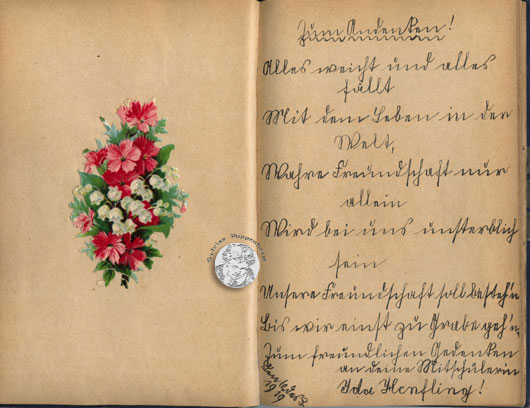 Zum Andenken!
Alles weicht und alles
fällt
Mit dem Leben in der
Welt,
Wahre Freundschaft nur
allein
Wird bei uns unsterblich
sein
Unsere Freundschaft soll besteh'n
Bis wir einst zu Grabe geh'n,
Zum freundlichen Gedenken
an deine Mitschülerin
Ida Henfling!
1919